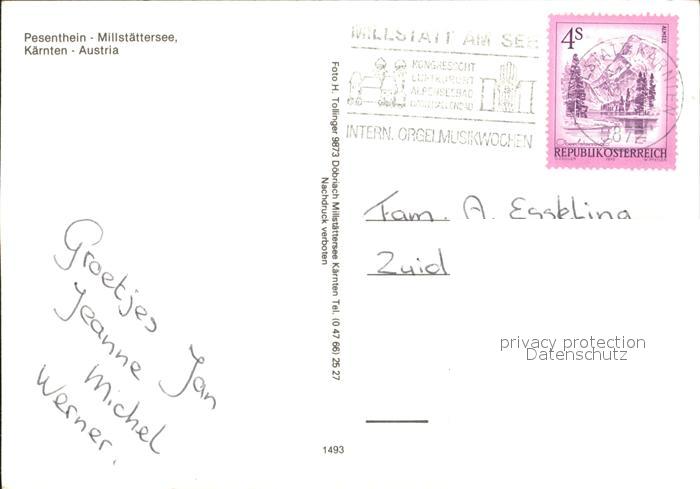 Pesenthein - Millstättersee,
Kärnten - Austria
MILLSTATT AM SEE
KONGRESSCHT
LUFTKURORT
ALPENSEEBAD
INTERN. ORGELMUSIKWOCHEN
4S
ALMSEE
9872
REPUBLIK ÖSTERREICH
Foto H. Tollinger 9873 Döbriach Millstättersee Kärnten Tel. (0 47 66) 25 27
Nachdruck verboten
Fam. A. Esseling
Zuid
Groetjes Jan
Jeanne
Michel
Werner.
privacy protection
Datenschutz
1493